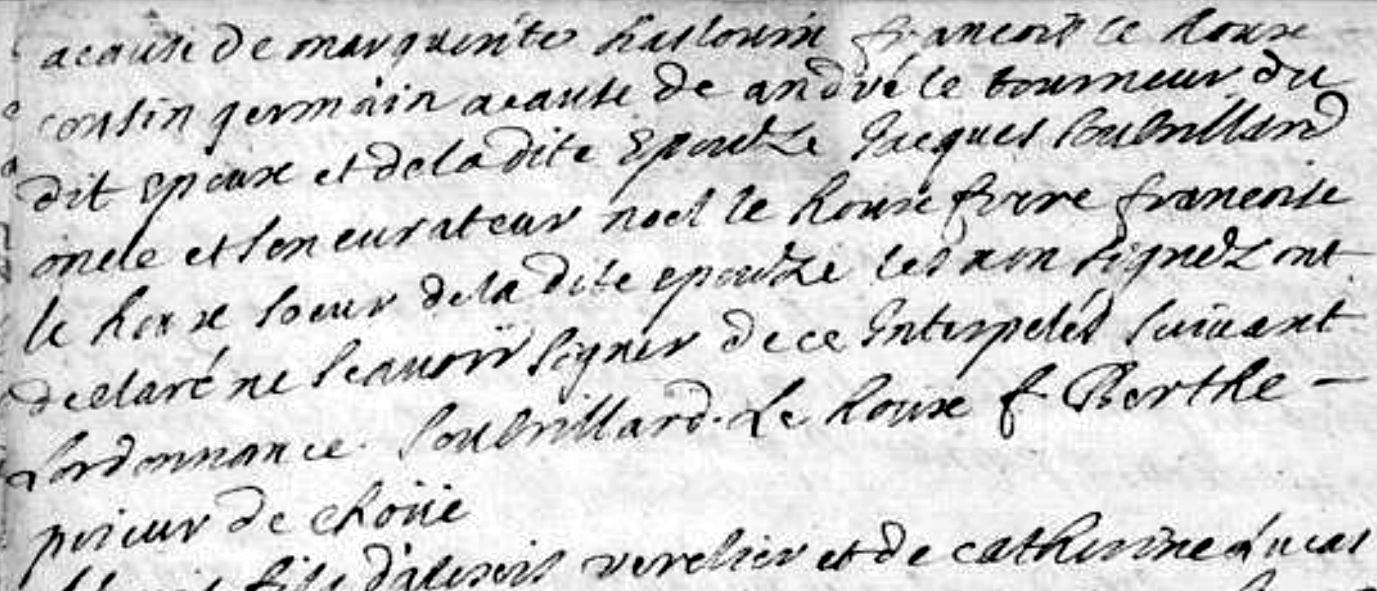 acause de marguerite hasloum francois le houx
cousin germain acause de andré le tourneur du
dit epoux et deladite Epouse Jacques Soubrillard
oncle et son curateur noel le houx frere francoise
le houx soeur deladite epouse les non signez ont
declaré ne scauoir signer de ce Interpelés suiuant
Lordonnance. Soubrillard. Le houx f Berthe
prieur de choüe
fils d'alexis verelier et de catherine Lucas